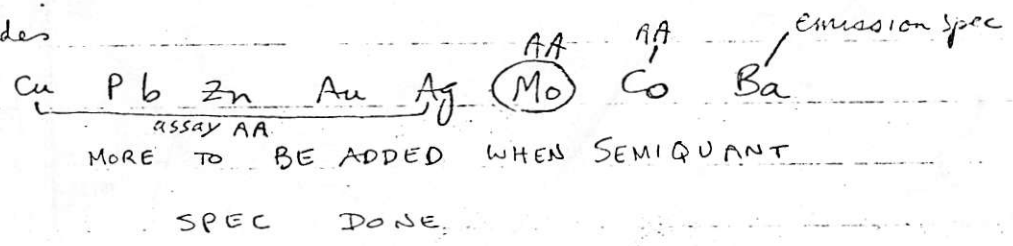 des
AA AA Emission Spec
Cu Pb Zn Au Ag Mo Co Ba
assay AA
MORE TO BE ADDED WHEN SEMIQUANT
SPEC DONE.